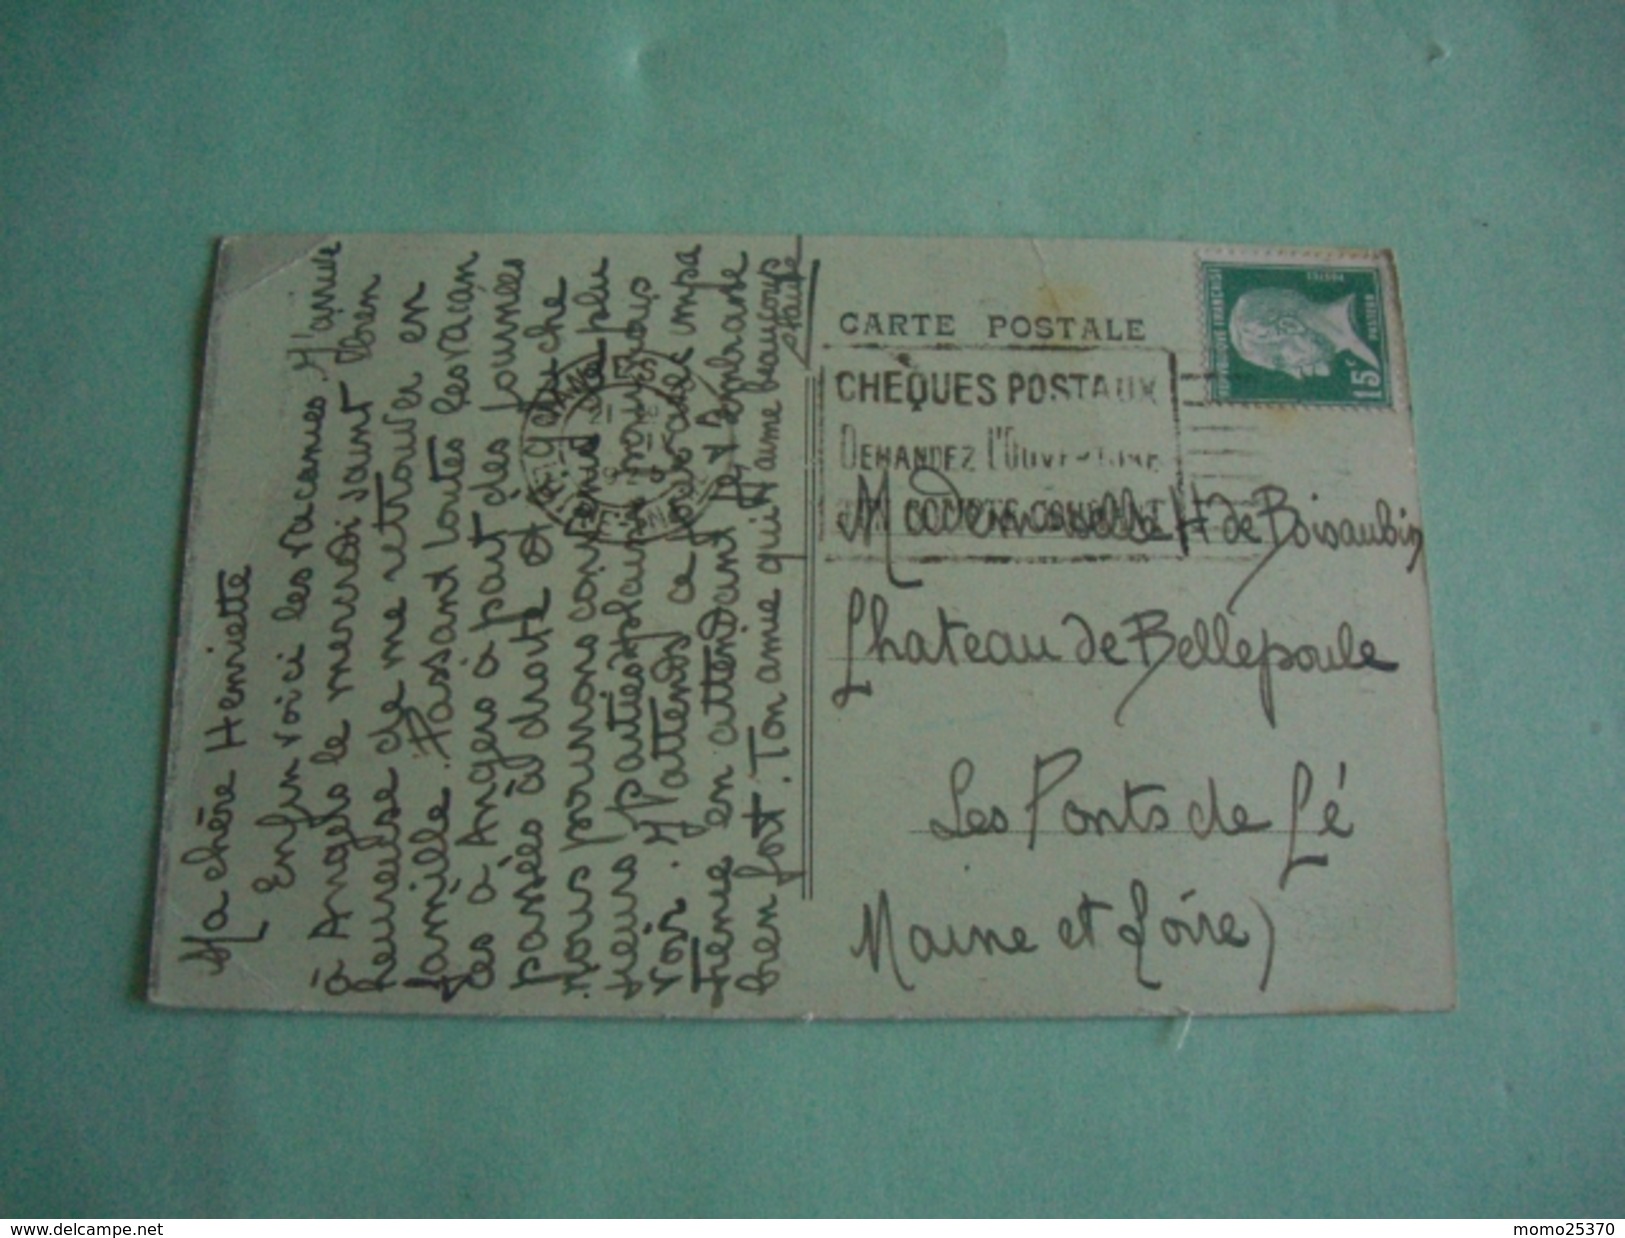 Ma chère Henriette
Enfin voici les vacances. J'arrive
à Angers le mercredi saint bien
heureuse de me retrouver en
famille. Passant toutes les vacan
ces à Angers à part des tournées
passées à droite et à gauche
nous pourrons convenir de plu
sieurs parties plaisir pour nous
voir. J'attends ce jour avec impa
tience en attendant je t'embrasse
bien fort. Ton amie qui t'aime beaucoup
CARTE POSTALE
CHÈQUES POSTAUX
DEMANDEZ L'OUVERTURE
COMPTE COURANT
REPUBLIQUE FRANÇAISE
POSTES
PASTEUR
15c
Mademoiselle H de Boisaubin
Château de Bellepoule
Les Ponts de Cé
Maine et Loire)
www.delcampe.net
momo25370